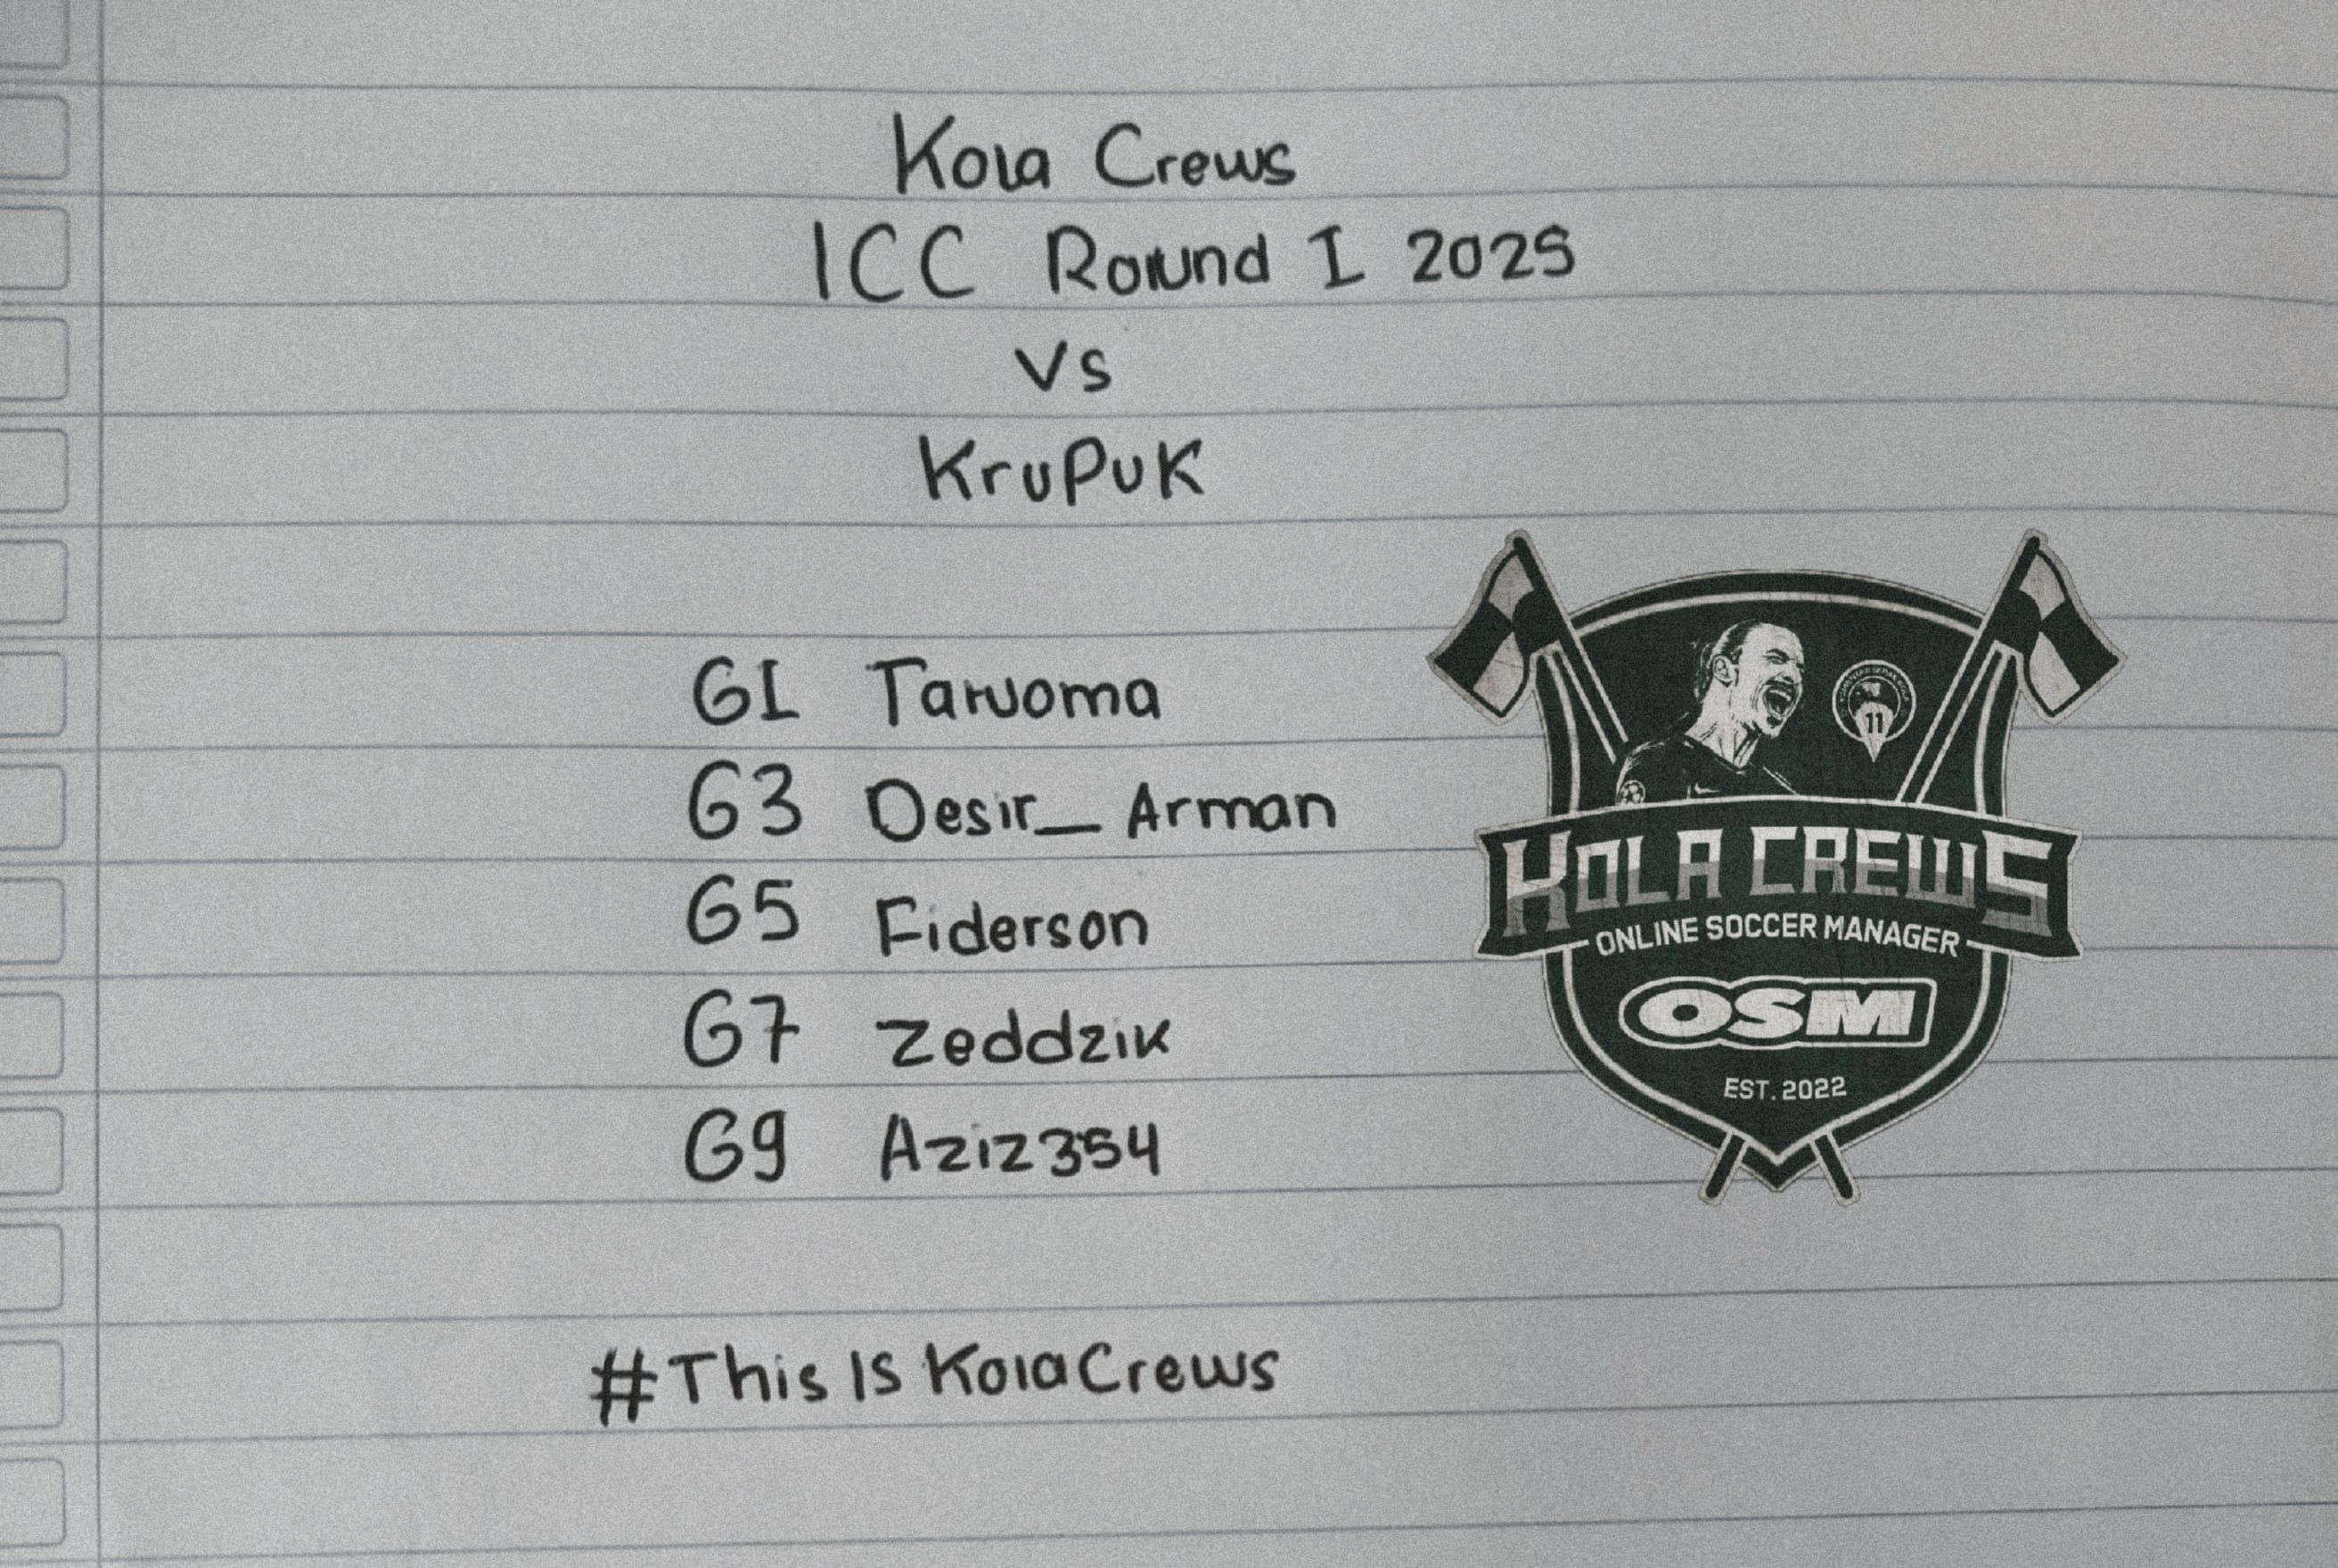 Kola Crews
ICC Round I 2025
Vs
KruPuK
G1 Taruoma
G3 Desir_ Arman
G5 Fiderson
G7 Zeddzik
G9 Aziz354
#This Is KolaCrews
11
KOLA CREWS
ONLINE SOCCER MANAGER
OSM
EST. 2022